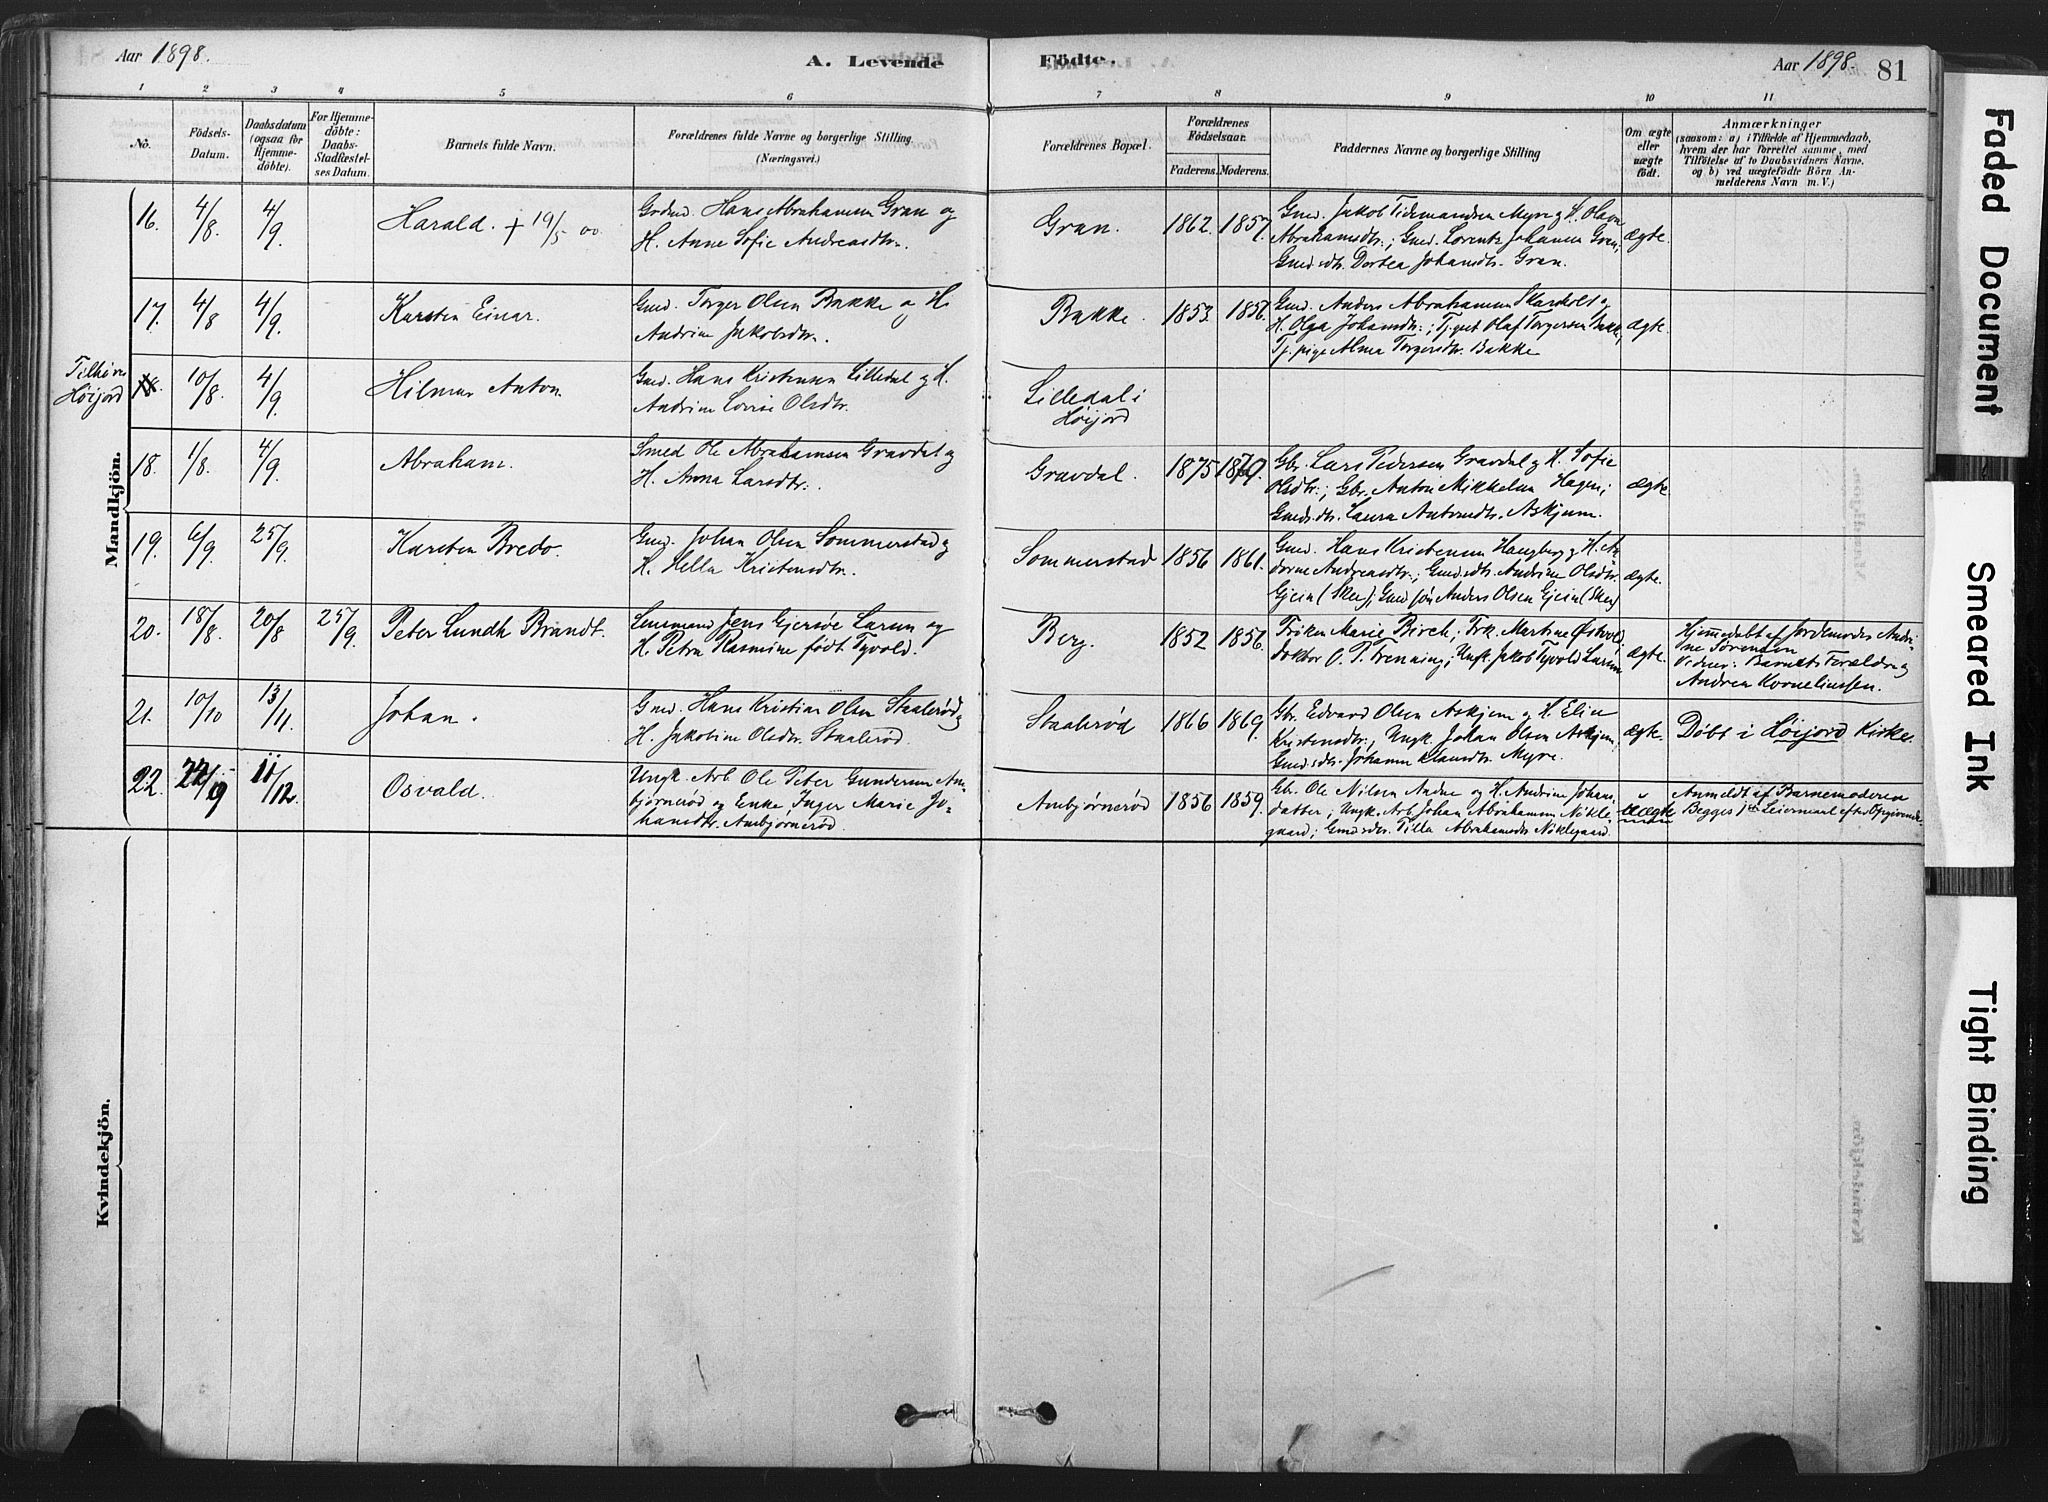 Aar 1898.
A. Levende
Födte.
Aar 1898.
81
1 2 3 4 5 6 7 8 9 10 11
No.
Födsels-
Datum.
Daabsdatum
(ogsaa for
Hjemme-
döbte).
For Hjemme-
döbte:
Daabs-
Stadfæstel-
ses Datum.
Barnets fulde Navn.
Forældrenes fulde Navne og borgerlige Stilling.
(Næringsvei.)
Forældrenes Bopæl.
Forældrenes
Födselsaar.
Faderens. Moderens.
Faddernes Navne og borgerlige Stilling
Om ægte
eller
uægte
födt.
Anmærkninger
(saasom: a) i Tilfælde af Hjemmedaab,
hvem der har forrettet samme, med
Tilföielse af to Daabsvidners Navne,
og b) ved uægtefödte Börn An-
melderens Navn m. V.)
Mandkjön.
16. 4/8 4/9
Harald. + 19/5 00.
Hans Abrahamsen Gran og
H. Anne Sofie Andreasdtr.
Gran.
1862. 1857.
Gmd. Jakob Tidemandsen Myre og H. Olava
Abrahamsdtr.; Gmd. Lorentz Johansen Gran;
Gmdsdtr. Dortea Johansdtr. Gran.
ægte.
17. 4/8 4/9
Karsten Einar.
Gmd. Torger Olsen Bakke og H.
Andrine Jakobsdtr.
Bakke.
1853. 1856.
Gmd. Anders Abrahamsen Skarsholt og
H. Olga Johansdtr.; Tj.gut Olaf Torgersen Bakke,
Tj.pige Alma Torgersdtr. Bakke
ægte.
Tilhører
Høijord
18. 10/8 4/9
Hilmar Anton.
Gmd. Hans Kristensen Lilledal og H.
Andrine Lovise Olsdtr.
Lilledal i
Høijord
18. 1/8. 4/9
Abraham.
Smed Ole Abrahamsen Gravdal og
H. Anna Larsdtr.
Gravdal.
1875 1879.
Gbr. Lars Pedersen Gravdal og H. Sofie
Olsdtr.; Gbr. Anton Mikkelsen Hagen;
Gmds.dtr. Laura Antonsdtr. Askjem.
ægte.
19. 6/9 25/9
Karsten Bredo.
Gmd. Johan Olsen Sommerstad og
H. Hella Kristensdtr.
Sommerstad
1856 1861.
Gmd. Hans Kristensen Haugberg og H. An-
dorne Andreasdtr.; Gmdsdtr. Andrine Olsdtr.
Gjein (Skee); Gmd.søn Anders Olsen Gjein (Skee)
ægte.
20. 18/8. 20/8 25/9
Peter Lundh Brandt.
Lensmand Jens Gjersøe Larum og
H. Petra Rasmine født Tyvold.
Berg.
1852 1856.
Frøken Marie Birch; Frk. Martine Østvold,
Doktor O. P. Trenning; Ungk. Jakob Tyvold Larum
ægte.
Hjemmedøbt af Jordemoder Andri-
ne Sørensen
Vidner: Barnets Forældre og
Andrea Korneliussen.
21. 10/10 13/11.
Johan.
Gmd. Hans Kristian Olsen Staalerød og
H. Jakobine Olsdtr. Staalerød.
Staalerød
1866 1869.
Gbr. Edvard Olsen Askjem og H. Elise
Kristensdtr.; Ungk. Johan Olsen Askjem;
Gmdsdtr. Johanne Klausdtr. Myre.
ægte.
Døbt i Høijord Kirke.
22. 22/9 11/12.
Osvald.
Ungk. Arb. Ole Peter Gundersen Am-
bjørnerød og Enke Inger Marie Jo-
hansdtr. Ambjørnerød.
Ambjørnerød
1856 1859.
Gbr. Ole Nilsen Andue og H. Andrine Johans-
datter; Ungk. Arb. Johan Abrahamsen Nikle-
gaard; Gmdsdtr. Tilla Abrahamsdtr. Niklegaard.
Uægte
Anmeldt af Barnemoderen
Begges 1ste Leiermaal efter Opgivende.
Kvindekjön.
Faded Document
Smeared Ink
Tight Binding